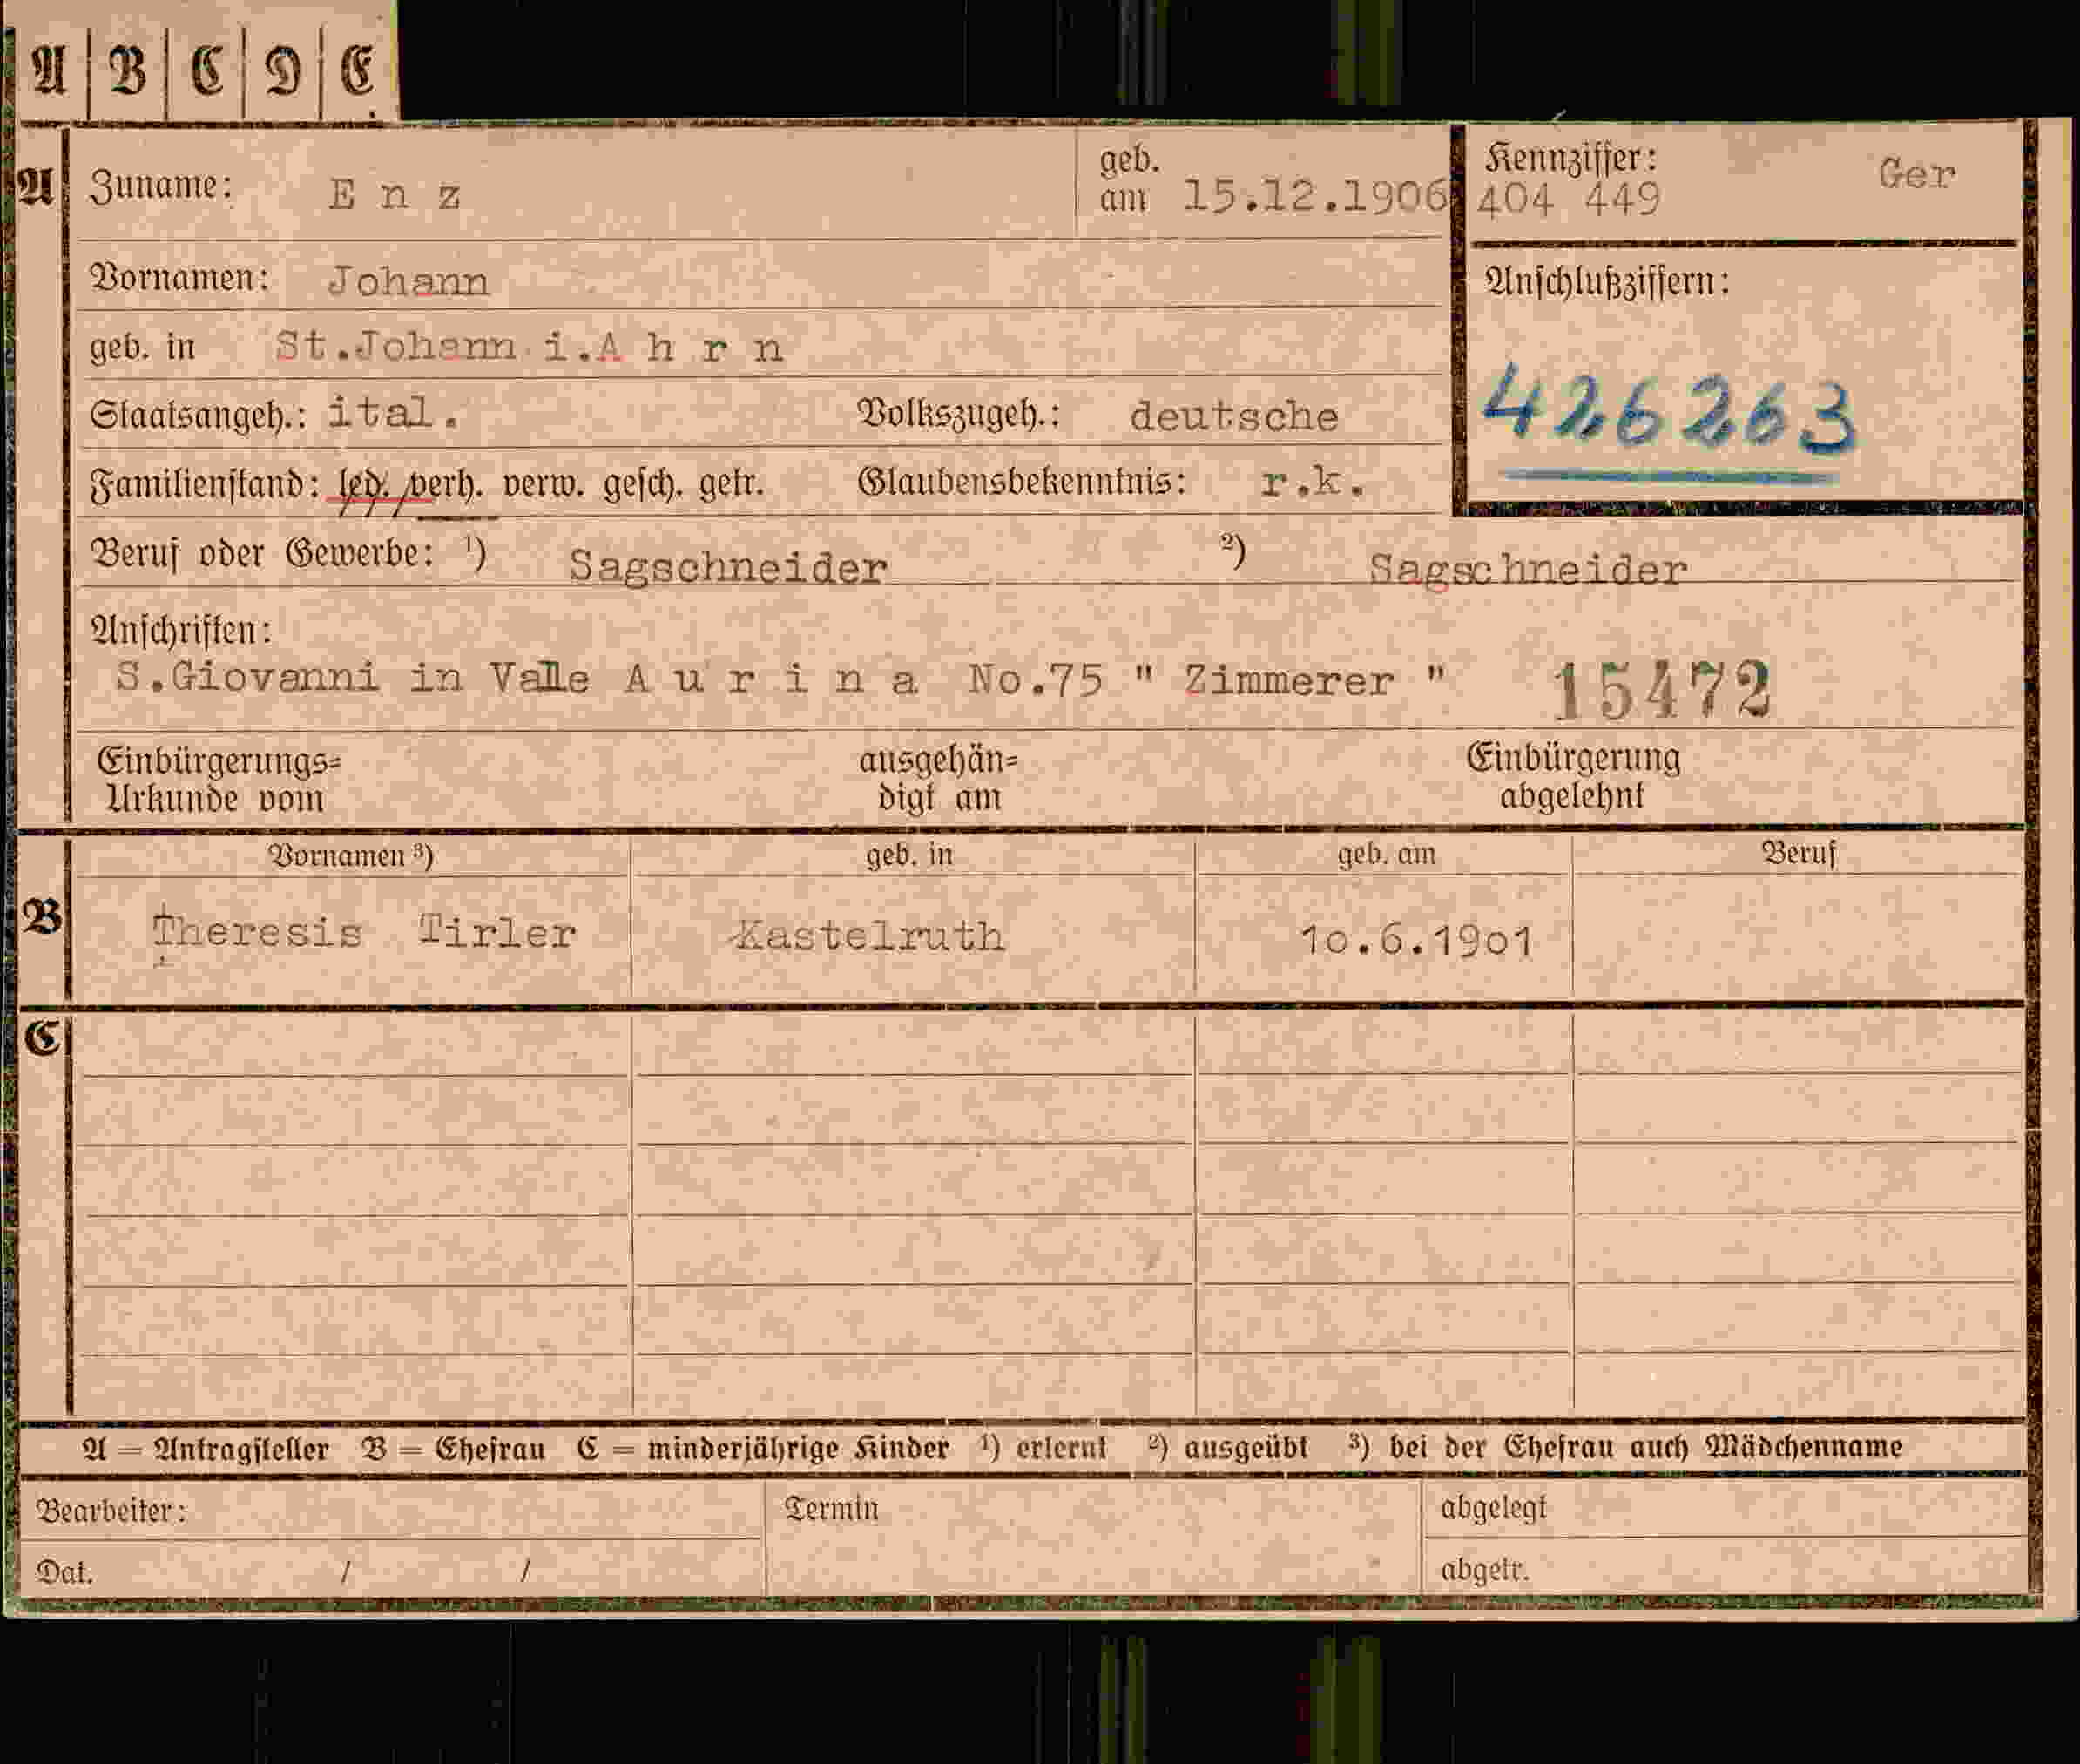 A | B | C | D | E
A Zuname: E n z geb. am 15.12.1906 Kennziffer: 404 449 Ger
Vornamen: Johann
Anschlußziffern:
geb. in St.Johann i.A h r n
426263
Staatsangeh.: ital. Volkszugeh.: deutsche
Familienstand: led. verh. verw. gesch. getr. Glaubensbekenntnis: r.k.
Beruf oder Gewerbe: ¹) Sagschneider ²) Sagschneider
Anschriften:
S.Giovanni in Valle A u r i n a No.75 " Zimmerer " 15472
Einbürgerungs= ausgehän= Einbürgerung
Urkunde vom digt am abgelehnt
Vornamen ³) geb. in geb. am Beruf
B Theresis Tirler Kastelruth 10.6.1901
C
A = Antragsteller B = Ehefrau C = minderjährige Kinder ¹) erlernt ²) ausgeübt ³) bei der Ehefrau auch Mädchenname
Bearbeiter: Termin abgelegt
Dat. / / abgetr.